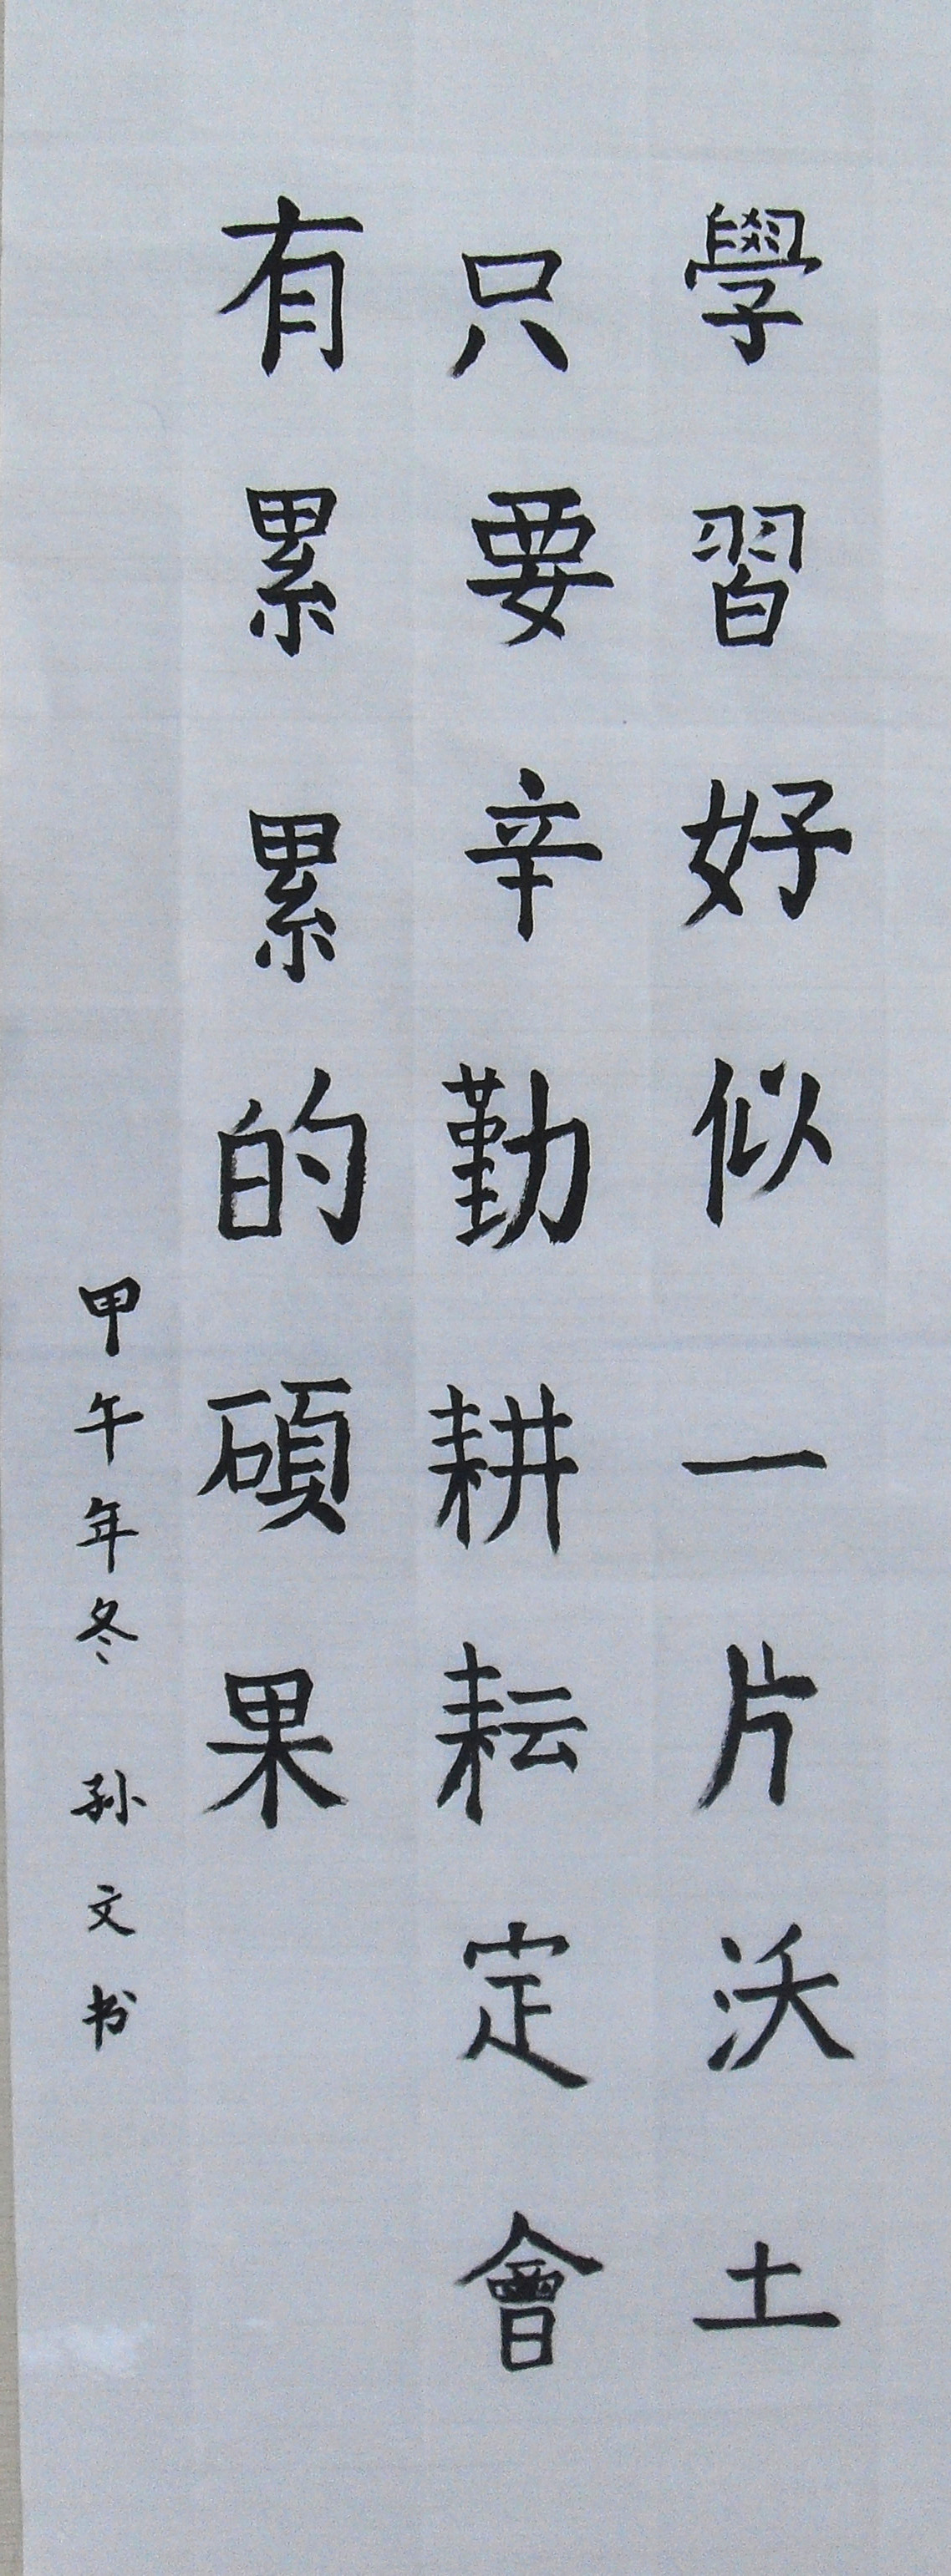 學習好似一片沃土
只要辛勤耕耘定會
有累累的碩果
甲午年冬 孙文书